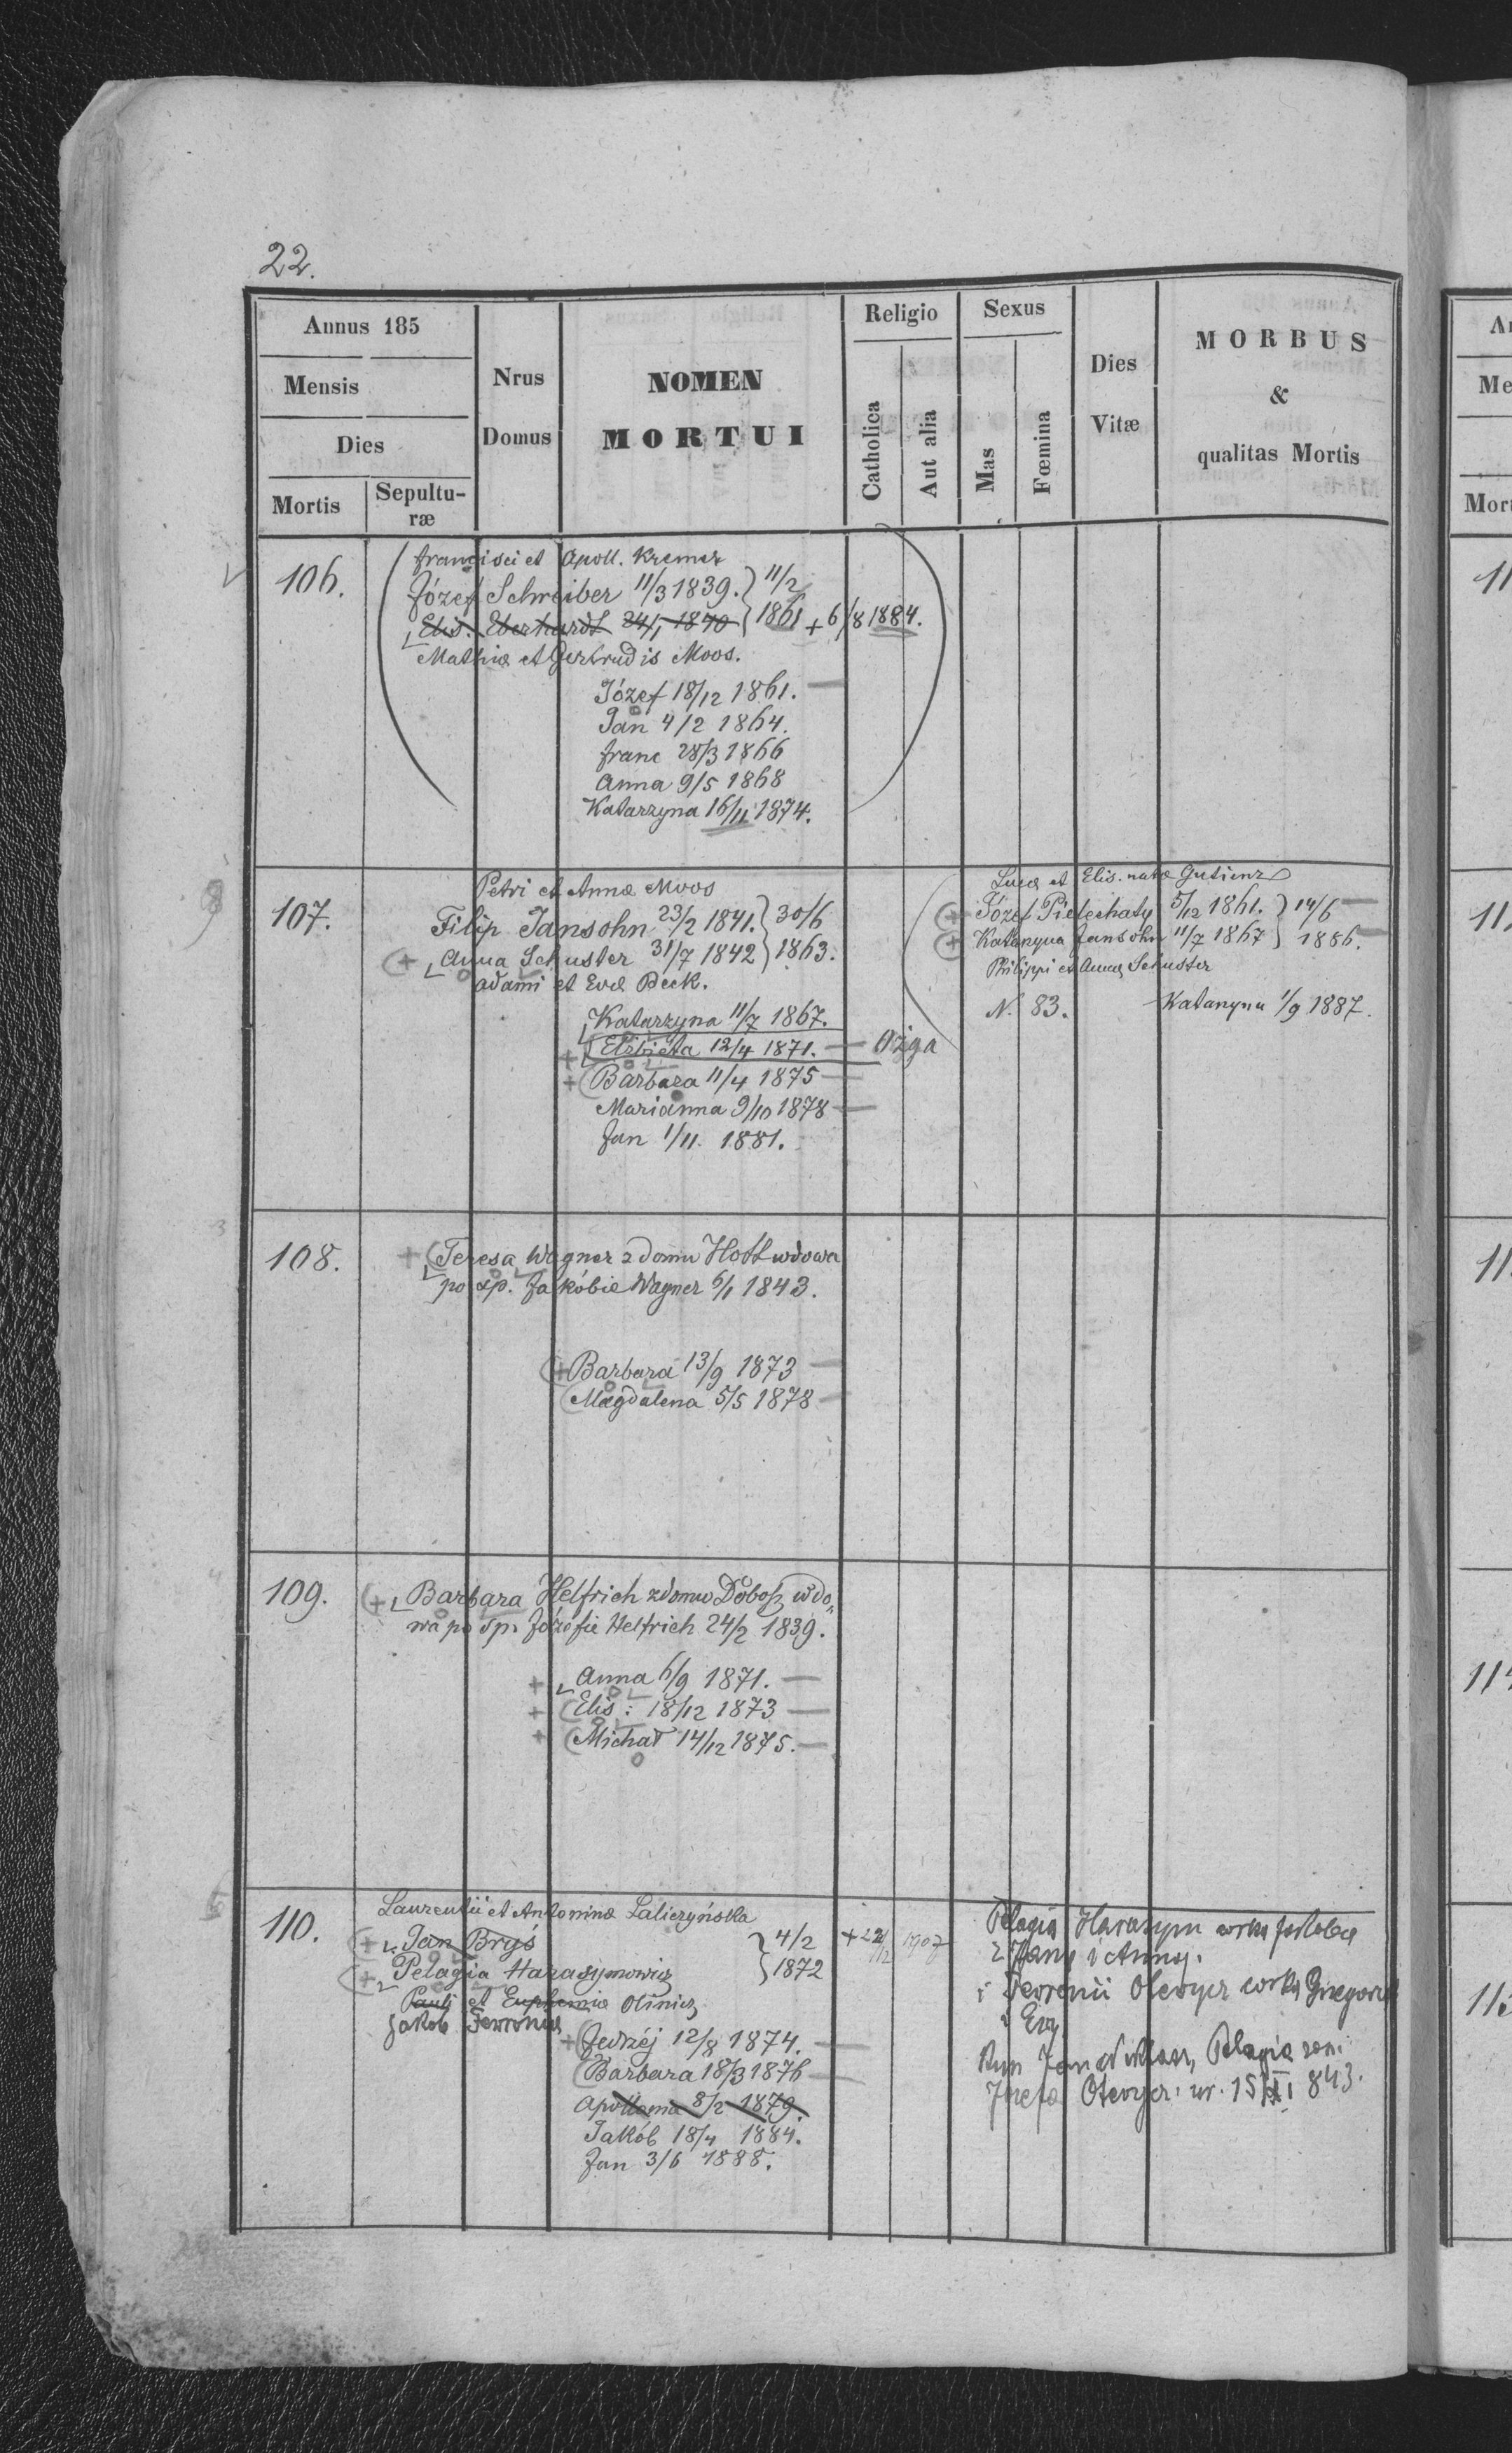 22.
Annus 185
Mensis
Dies
Mortis
Sepultu-
ræ
Nrus
Domus
NOMEN
MORTUI
Religio
Catholica
Aut alia
Sexus
Mas
Fœmina
Dies
Vitæ
MORBUS
&
qualitas Mortis
106.
francisci et Apoll. Kremer
Józef Schreiber 11/3 1839. } 11/2
Elis. Eberhardt 24/1 1840 } 1861 + 6/8 1884.
Mathiæ et Gertrudis Moos.
Józef 18/12 1861.
Jan 4/2 1864.
franc 28/3 1866
Anna 9/5 1868
Katarzyna 16/11 1874.
107.
Petri et Annæ Moos
Filip Jansohn 23/2 1841. } 30/6
+ Anna Schuster 31/7 1842 } 1863.
adami et Evæ Beck.
Katarzyna 11/7 1867.
+ Elżbieta 12/4 1871. — Ożga
+ Barbara 11/4 1875
Marianna 9/10 1878
Jan 1/11. 1881.
Lucæ et Elis. natæ Gutienz
+ Józef Pielechaty 5/12 1861. } 14/6
+ Katarzyna Jansohn 11/7 1867 } 1886.
Philippi et Annæ Schuster
N. 83. Katarzyna 1/9 1887.
108.
+ Teresa Wagner z domu Hott wdowa
po śp. Jakóbie Wagner 6/1 1843.
+ Barbara 13/9 1873
Magdalena 5/5 1878
109.
+ Barbara Helfrich z domu Dobosz wdo„
wa po śp. Józefie Helfrich 24/2 1839.
+ Anna 6/9 1871.
+ Elis: 18/12 1873
+ Michał 14/12 1875.
110.
Laurentii et Antoninæ Saliczyńska
+ Jan Bryś } 4/2 + 22/12 1907
+ Pelagia Harasymowicz } 1872
Pauli et Euphemiæ Olinicz
Jakób Fewronia
+ Jedrzéj 12/8 1874.
Barbara 18/3 1876
Apollonia 8/2 1879.
Jakób 18/4 1884.
Jan 3/6 1888.
Pelagia Harasym corka Jakoba
Jana i Anny.
i Fewronii corka Gregorza
i Ewy
Jan Pelagia
Jozefa ur. 15/XI 843.